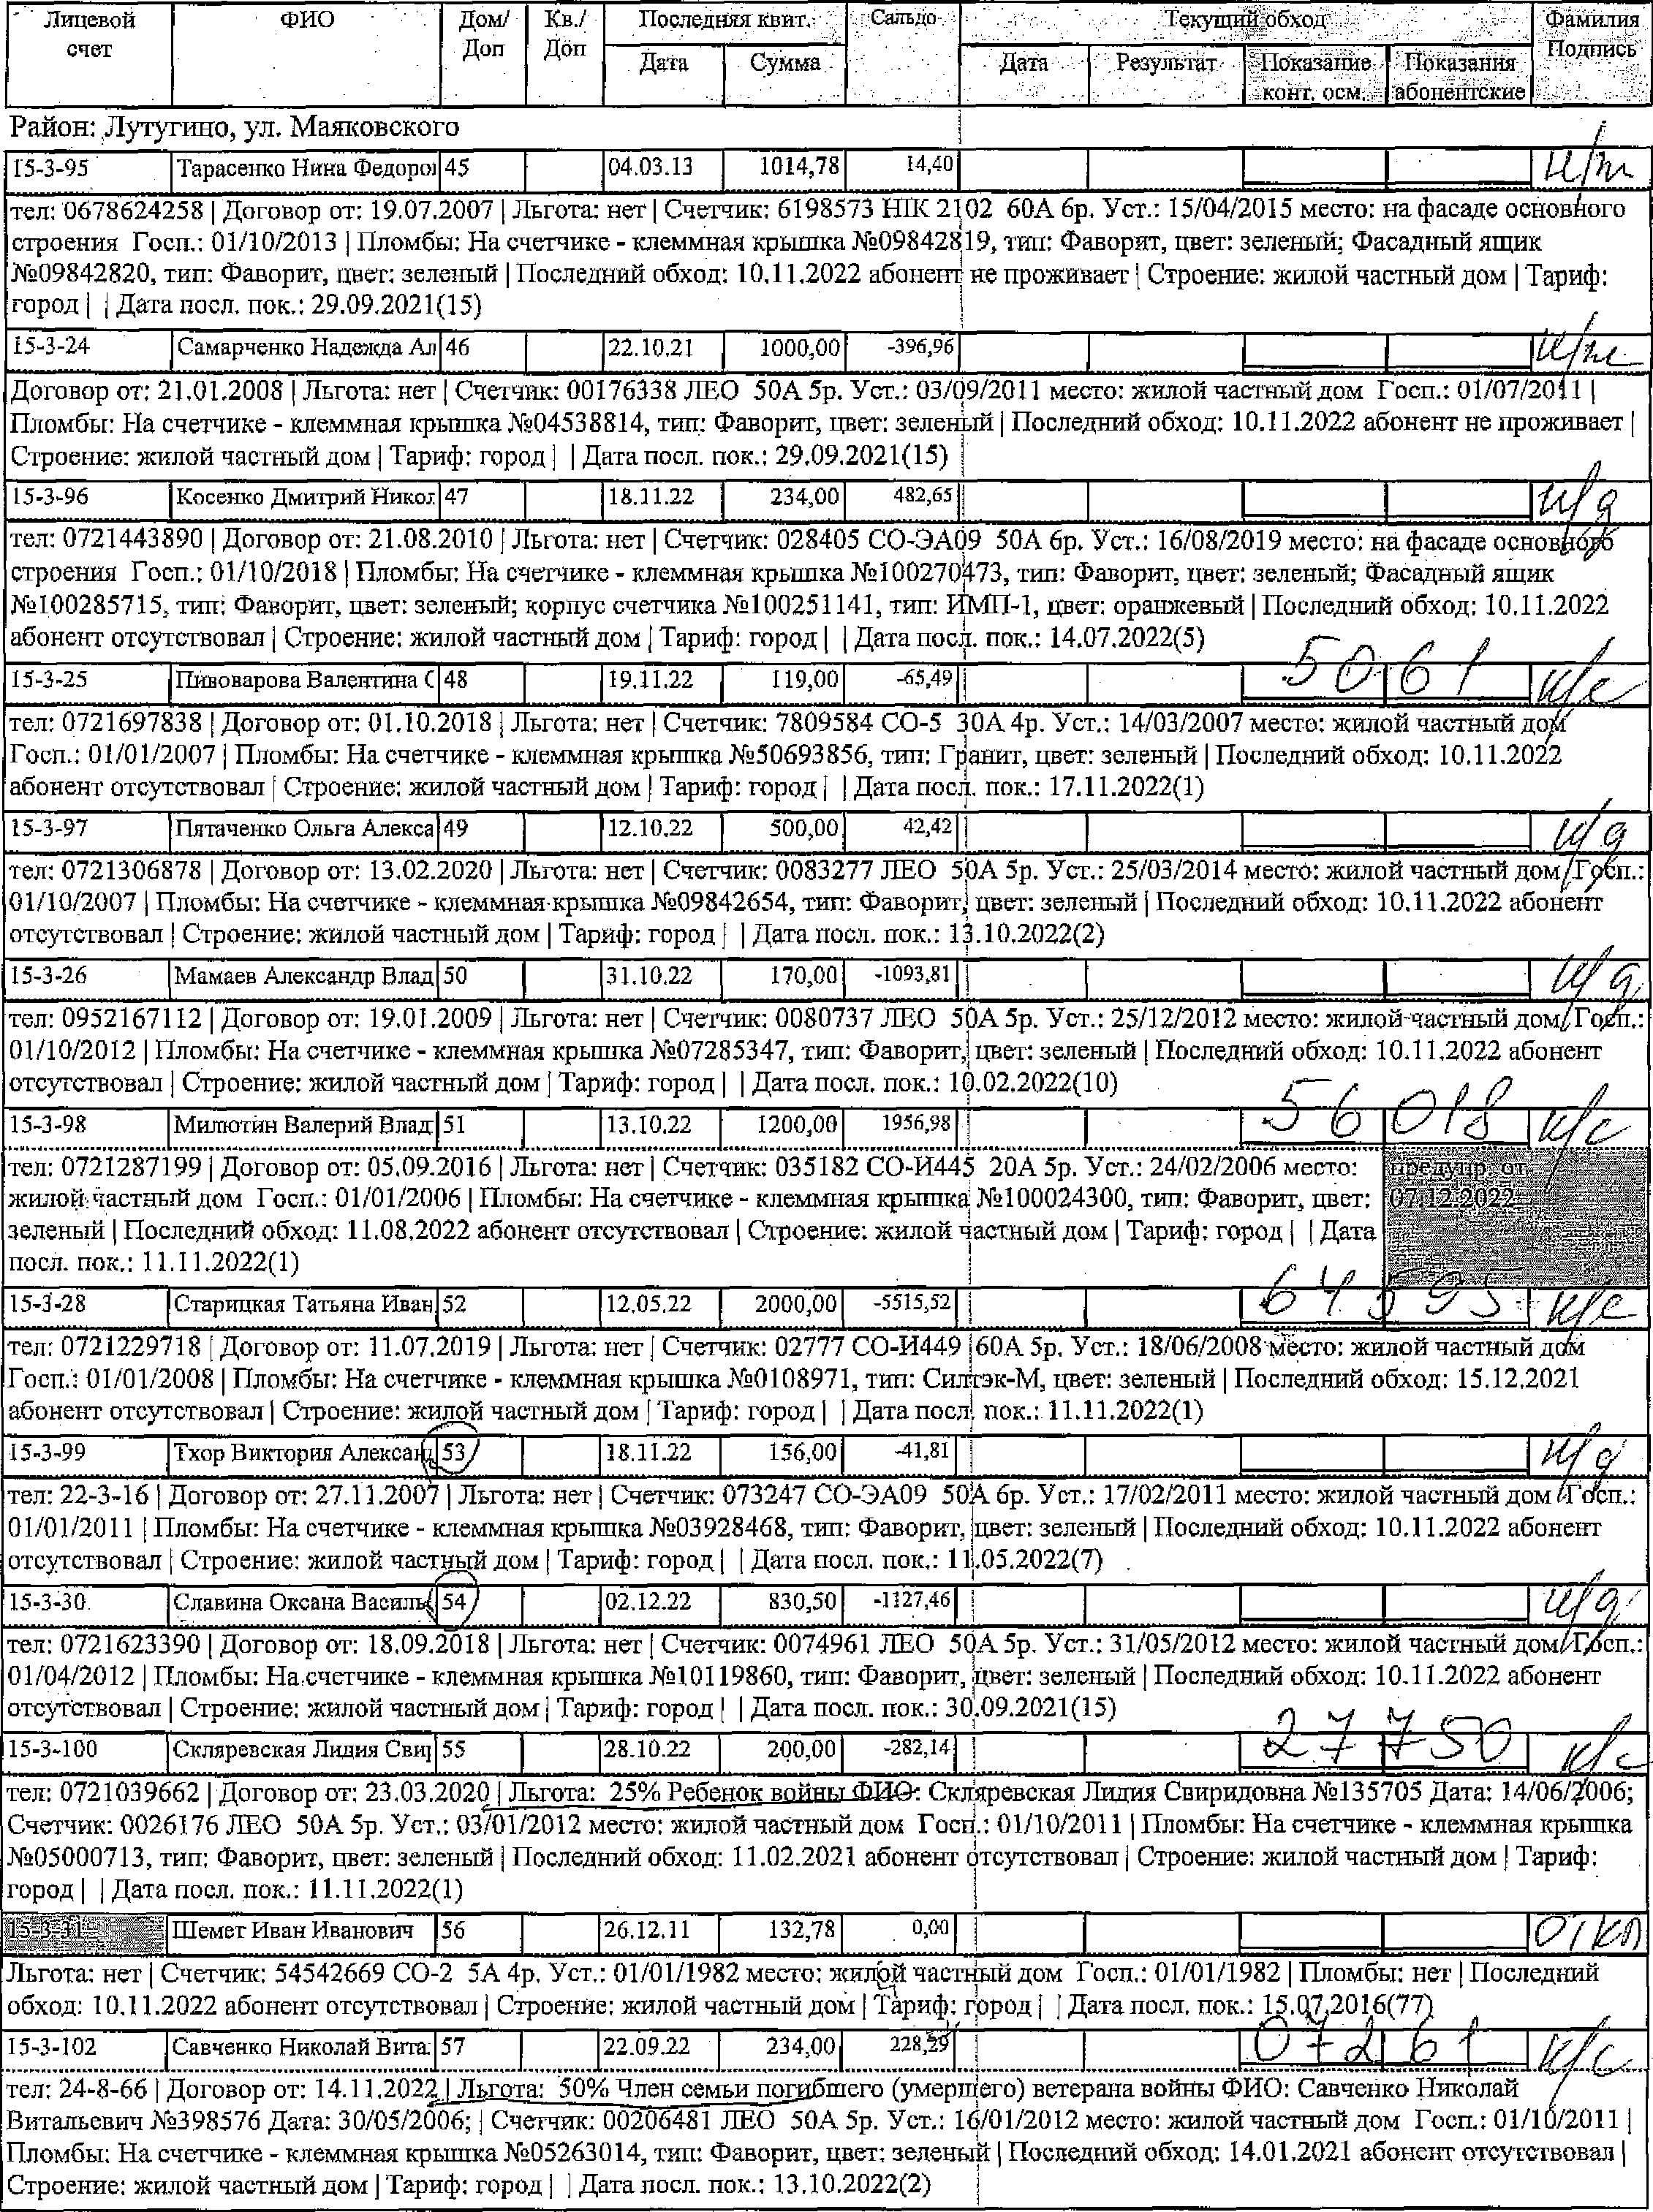 Лицевой счет ФИО Дом/Доп Кв./Доп Последняя квит. Сальдо Текущий обход Фамилия Подпись
Дата Сумма Дата Результат Показание конт. осм. Показания абонентские
Район: Лутугино, ул. Маяковского
15-3-95 Тарасенко Нина Федоро 45 04.03.13 1014,78 14,40 н/п
тел: 0678624258 | Договор от: 19.07.2007 | Льгота: нет | Счетчик: 6198573 НІК 2102 60А 6р. Уст.: 15/04/2015 место: на фасаде основного
строения Госп.: 01/10/2013 | Пломбы: На счетчике - клеммная крышка №09842819, тип: Фаворит, цвет: зеленый; Фасадный ящик
№09842820, тип: Фаворит, цвет: зеленый | Последний обход: 10.11.2022 абонент не проживает | Строение: жилой частный дом | Тариф:
город | | Дата посл. пок.: 29.09.2021(15)
15-3-24 Самарченко Надежда Ал 46 22.10.21 1000,00 -396,96 н/п
Договор от: 21.01.2008 | Льгота: нет | Счетчик: 00176338 ЛЕО 50А 5р. Уст.: 03/09/2011 место: жилой частный дом Госп.: 01/07/2011 |
Пломбы: На счетчике - клеммная крышка №04538814, тип: Фаворит, цвет: зеленый | Последний обход: 10.11.2022 абонент не проживает |
Строение: жилой частный дом | Тариф: город | | Дата посл. пок.: 29.09.2021(15)
15-3-96 Косенко Дмитрий Никол 47 18.11.22 234,00 482,65 н/д
тел: 0721443890 | Договор от: 21.08.2010 | Льгота: нет | Счетчик: 028405 СО-ЭА09 50А 6р. Уст.: 16/08/2019 место: на фасаде основного
строения Госп.: 01/10/2018 | Пломбы: На счетчике - клеммная крышка №100270473, тип: Фаворит, цвет: зеленый; Фасадный ящик
№100285715, тип: Фаворит, цвет: зеленый; корпус счетчика №100251141, тип: ИМП-1, цвет: оранжевый | Последний обход: 10.11.2022
абонент отсутствовал | Строение: жилой частный дом | Тариф: город | | Дата посл. пок.: 14.07.2022(5)
15-3-25 Пивоварова Валентина С 48 19.11.22 119,00 -65,49 5061 к/с
тел: 0721697838 | Договор от: 01.10.2018 | Льгота: нет | Счетчик: 7809584 СО-5 30А 4р. Уст.: 14/03/2007 место: жилой частный дом
Госп.: 01/01/2007 | Пломбы: На счетчике - клеммная крышка №50693856, тип: Гранит, цвет: зеленый | Последний обход: 10.11.2022
абонент отсутствовал | Строение: жилой частный дом | Тариф: город | | Дата посл. пок.: 17.11.2022(1)
15-3-97 Пятаченко Ольга Алекса 49 12.10.22 500,00 42,42 н/д
тел: 0721306878 | Договор от: 13.02.2020 | Льгота: нет | Счетчик: 0083277 ЛЕО 50А 5р. Уст.: 25/03/2014 место: жилой частный дом Госп.:
01/10/2007 | Пломбы: На счетчике - клеммная крышка №09842654, тип: Фаворит, цвет: зеленый | Последний обход: 10.11.2022 абонент
отсутствовал | Строение: жилой частный дом | Тариф: город | | Дата посл. пок.: 13.10.2022(2)
15-3-26 Мамаев Александр Влад 50 31.10.22 170,00 -1093,81 н/д
тел: 0952167112 | Договор от: 19.01.2009 | Льгота: нет | Счетчик: 0080737 ЛЕО 50А 5р. Уст.: 25/12/2012 место: жилой частный дом Госп.:
01/10/2012 | Пломбы: На счетчике - клеммная крышка №07285347, тип: Фаворит, цвет: зеленый | Последний обход: 10.11.2022 абонент
отсутствовал | Строение: жилой частный дом | Тариф: город | | Дата посл. пок.: 10.02.2022(10)
15-3-98 Милютин Валерий Влад 51 13.10.22 1200,00 1956,98 56018 к/с
тел: 0721287199 | Договор от: 05.09.2016 | Льгота: нет | Счетчик: 035182 СО-И445 20А 5р. Уст.: 24/02/2006 место: предупр. от
жилой частный дом Госп.: 01/01/2006 | Пломбы: На счетчике - клеммная крышка №100024300, тип: Фаворит, цвет: 07.12.2022
зеленый | Последний обход: 11.08.2022 абонент отсутствовал | Строение: жилой частный дом | Тариф: город | | Дата
посл. пок.: 11.11.2022(1)
15-3-28 Старицкая Татьяна Иван 52 12.05.22 2000,00 -5515,52 64595 к/с
тел: 0721229718 | Договор от: 11.07.2019 | Льгота: нет | Счетчик: 02777 СО-И449 60А 5р. Уст.: 18/06/2008 место: жилой частный дом
Госп.: 01/01/2008 | Пломбы: На счетчике - клеммная крышка №0108971, тип: Силтэк-М, цвет: зеленый | Последний обход: 15.12.2021
абонент отсутствовал | Строение: жилой частный дом | Тариф: город | | Дата посл. пок.: 11.11.2022(1)
15-3-99 Тхор Виктория Алексан 53 18.11.22 156,00 -41,81 н/д
тел: 22-3-16 | Договор от: 27.11.2007 | Льгота: нет | Счетчик: 073247 СО-ЭА09 50А 6р. Уст.: 17/02/2011 место: жилой частный дом Госп.:
01/01/2011 | Пломбы: На счетчике - клеммная крышка №03928468, тип: Фаворит, цвет: зеленый | Последний обход: 10.11.2022 абонент
отсутствовал | Строение: жилой частный дом | Тариф: город | | Дата посл. пок.: 11.05.2022(7)
15-3-30 Славина Оксана Василь 54 02.12.22 830,50 -1127,46 н/д
тел: 0721623390 | Договор от: 18.09.2018 | Льгота: нет | Счетчик: 0074961 ЛЕО 50А 5р. Уст.: 31/05/2012 место: жилой частный дом Госп.:
01/04/2012 | Пломбы: На счетчике - клеммная крышка №10119860, тип: Фаворит, цвет: зеленый | Последний обход: 10.11.2022 абонент
отсутствовал | Строение: жилой частный дом | Тариф: город | | Дата посл. пок.: 30.09.2021(15)
15-3-100 Скляревская Лидия Сви 55 28.10.22 200,00 -282,14 27750 к/с
тел: 0721039662 | Договор от: 23.03.2020 | Льгота: 25% Ребенок войны ФИО: Скляревская Лидия Свиридовна №135705 Дата: 14/06/2006;
Счетчик: 0026176 ЛЕО 50А 5р. Уст.: 03/01/2012 место: жилой частный дом Госп.: 01/10/2011 | Пломбы: На счетчике - клеммная крышка
№05000713, тип: Фаворит, цвет: зеленый | Последний обход: 11.02.2021 абонент отсутствовал | Строение: жилой частный дом | Тариф:
город | | Дата посл. пок.: 11.11.2022(1)
15-3-31 Шемет Иван Иванович 56 26.12.11 132,78 0,00 откл
Льгота: нет | Счетчик: 54542669 СО-2 5А 4р. Уст.: 01/01/1982 место: жилой частный дом Госп.: 01/01/1982 | Пломбы: нет | Последний
обход: 10.11.2022 абонент отсутствовал | Строение: жилой частный дом | Тариф: город | | Дата посл. пок.: 15.07.2016(77)
15-3-102 Савченко Николай Вита 57 22.09.22 234,00 228,29 07261 к/с
тел: 24-8-66 | Договор от: 14.11.2022 | Льгота: 50% Член семьи погибшего (умершего) ветерана войны ФИО: Савченко Николай
Витальевич №398576 Дата: 30/05/2006; | Счетчик: 00206481 ЛЕО 50А 5р. Уст.: 16/01/2012 место: жилой частный дом Госп.: 01/10/2011 |
Пломбы: На счетчике - клеммная крышка №05263014, тип: Фаворит, цвет: зеленый | Последний обход: 14.01.2021 абонент отсутствовал |
Строение: жилой частный дом | Тариф: город | | Дата посл. пок.: 13.10.2022(2)